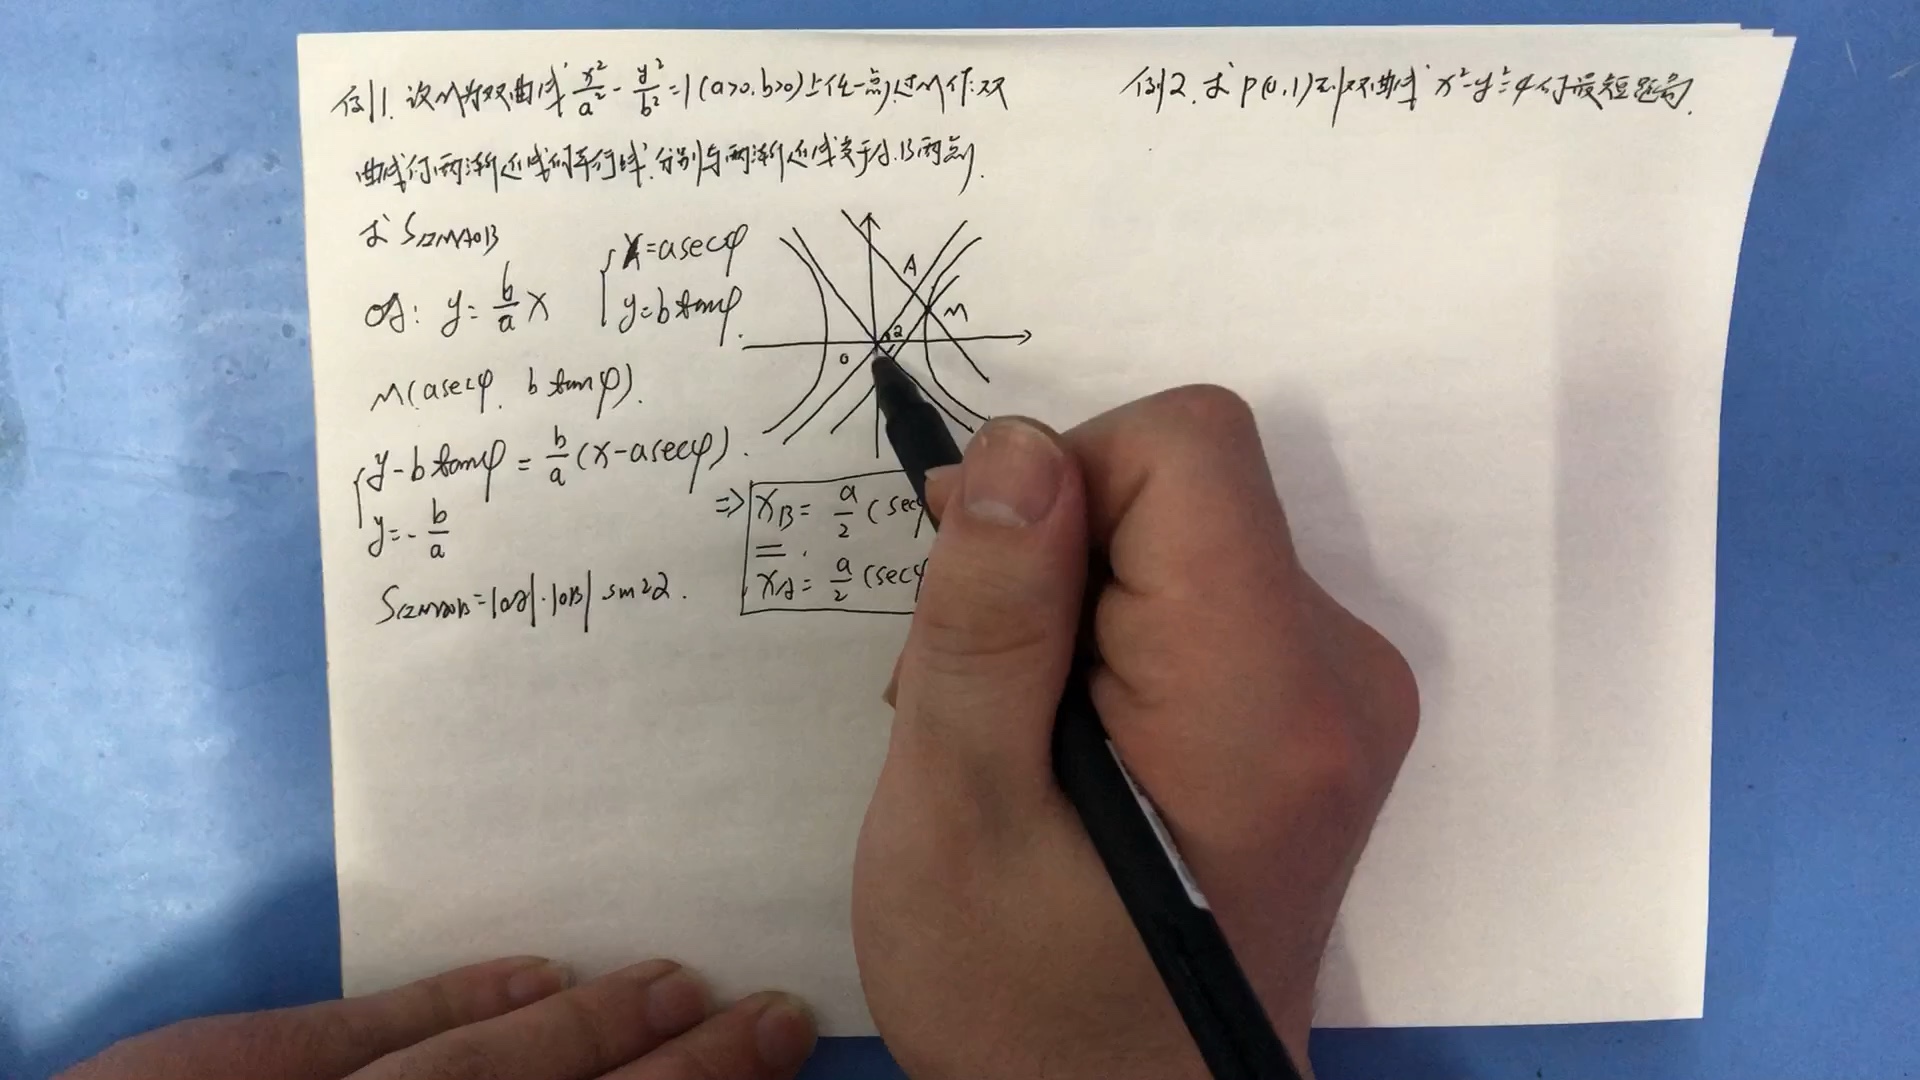 例1. 设M为双曲线 x²/a² - y²/b² = 1 (a>0, b>0) 上任一点, 过M作双
曲线的两渐近线的平行线. 分别与两渐近线交于A.B两点.
求 S▱MAOB
OA: y = b/a x
{ x = a secφ
y = b tanφ.
M(a secφ. b tanφ).
{ y - b tanφ = b/a (x - a secφ).
y = - b/a
⇒ x_B = a/2 (sec
x_A = a/2 (secφ
S▱MAOB = |OA|·|OB| sin2α.
A
M
α
O
例2. 求 P(0,1) 到双曲线 x²-y²=4的最短距离.